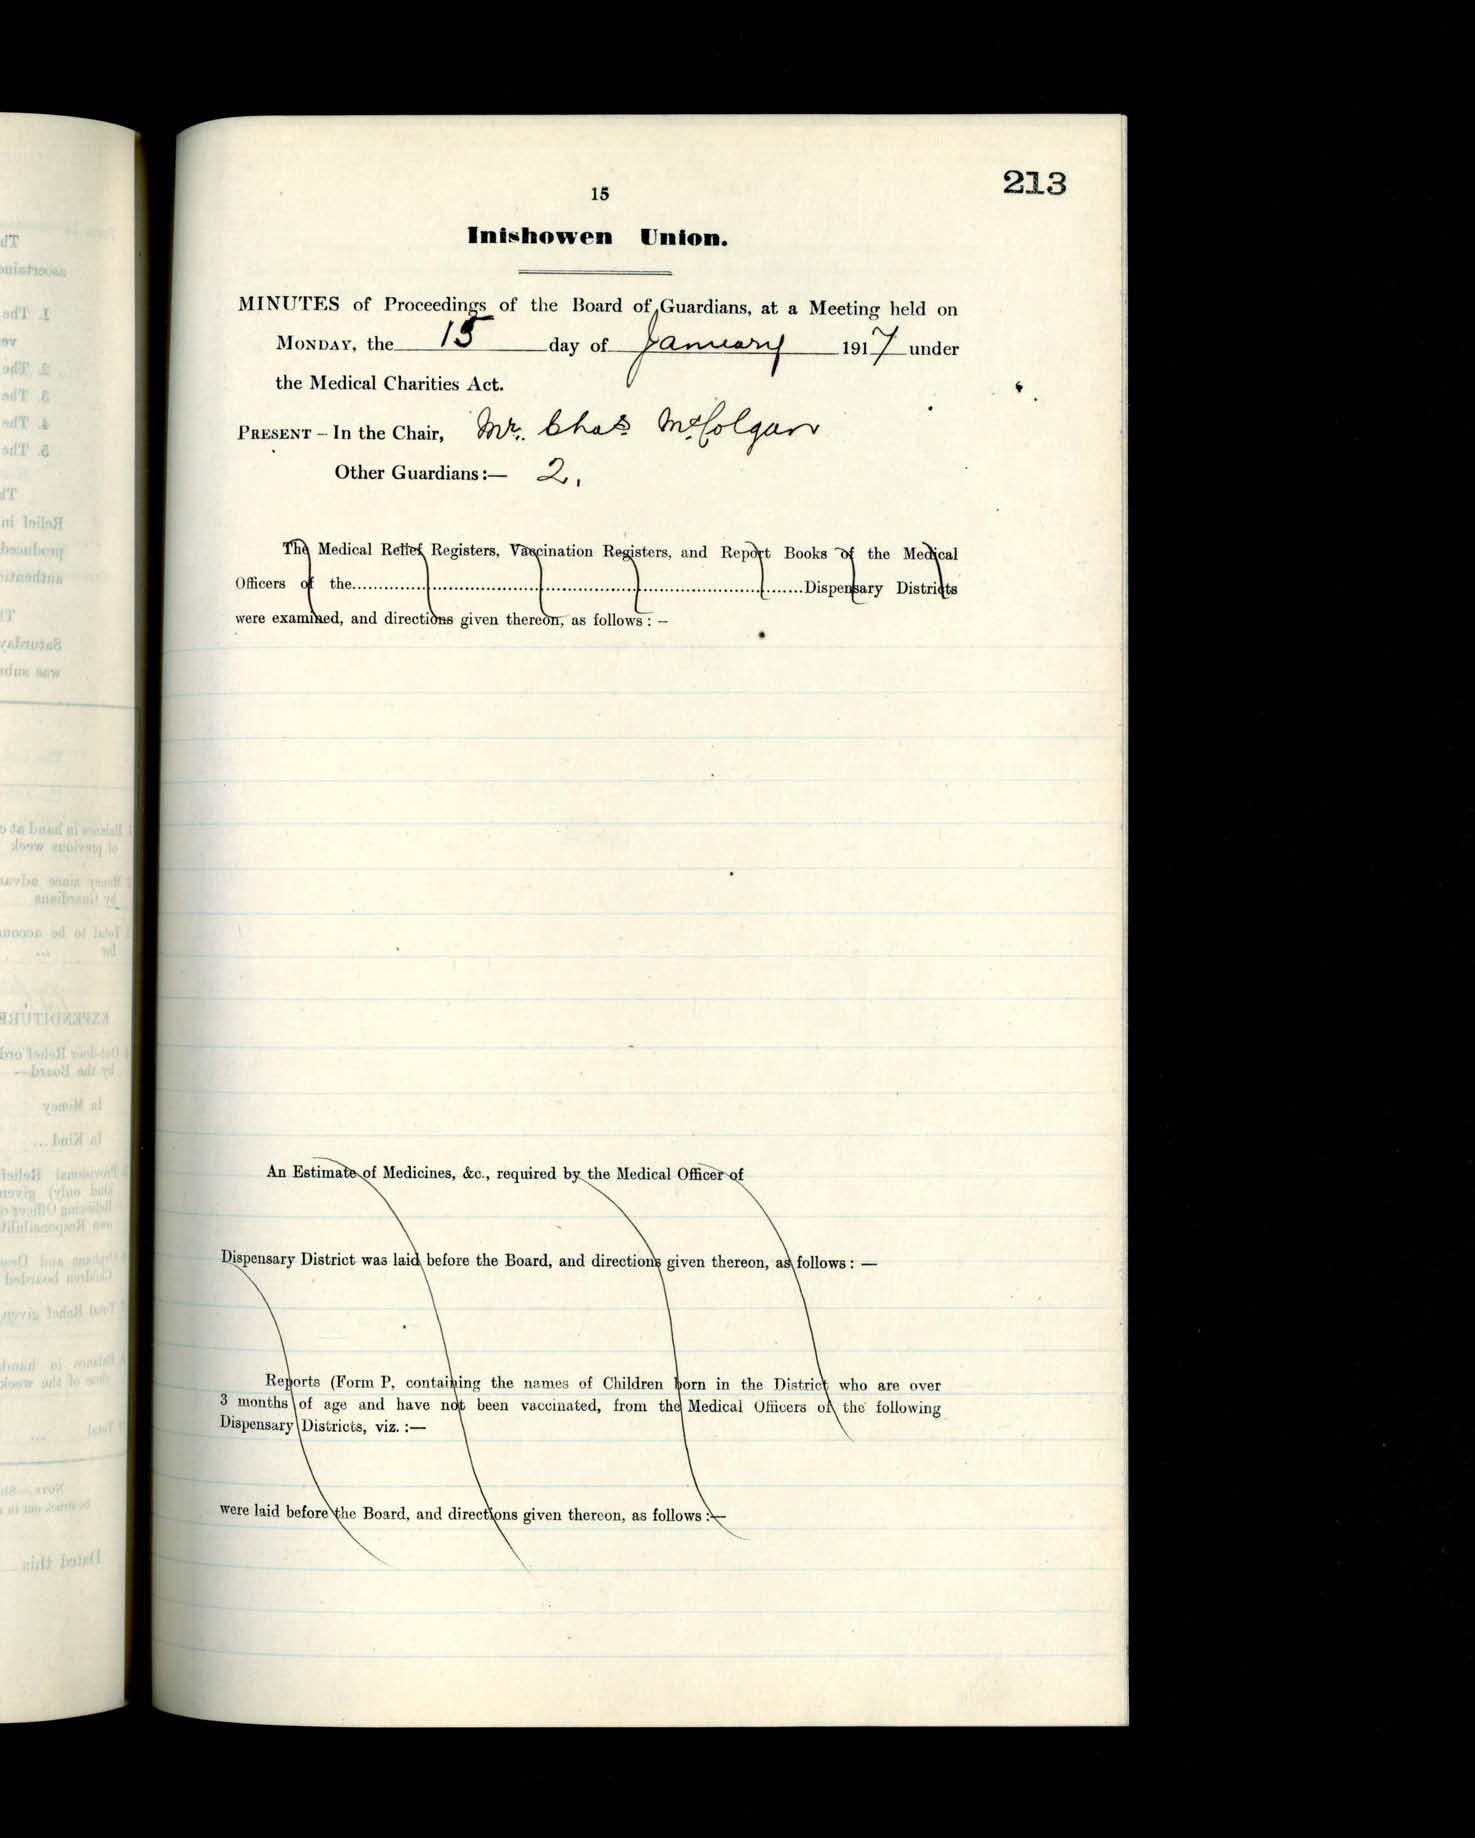 213
15
Inishowen Union.
MINUTES of Proceedings of the Board of Guardians, at a Meeting held on
MONDAY, the 15 day of January 1917 under
the Medical Charities Act.
PRESENT – In the Chair, Mr. Chas. McColgan
Other Guardians:— 2.
The Medical Relief Registers, Vaccination Registers, and Report Books of the Medical
Officers of the..........Dispensary Districts
were examined, and directions given thereon, as follows: –
An Estimate of Medicines, &c., required by the Medical Officer of
Dispensary District was laid before the Board, and directions given thereon, as follows: —
Reports (Form P, containing the names of Children born in the District who are over
3 months of age and have not been vaccinated, from the Medical Officers of the following
Dispensary Districts, viz. :—
were laid before the Board, and directions given thereon, as follows :—